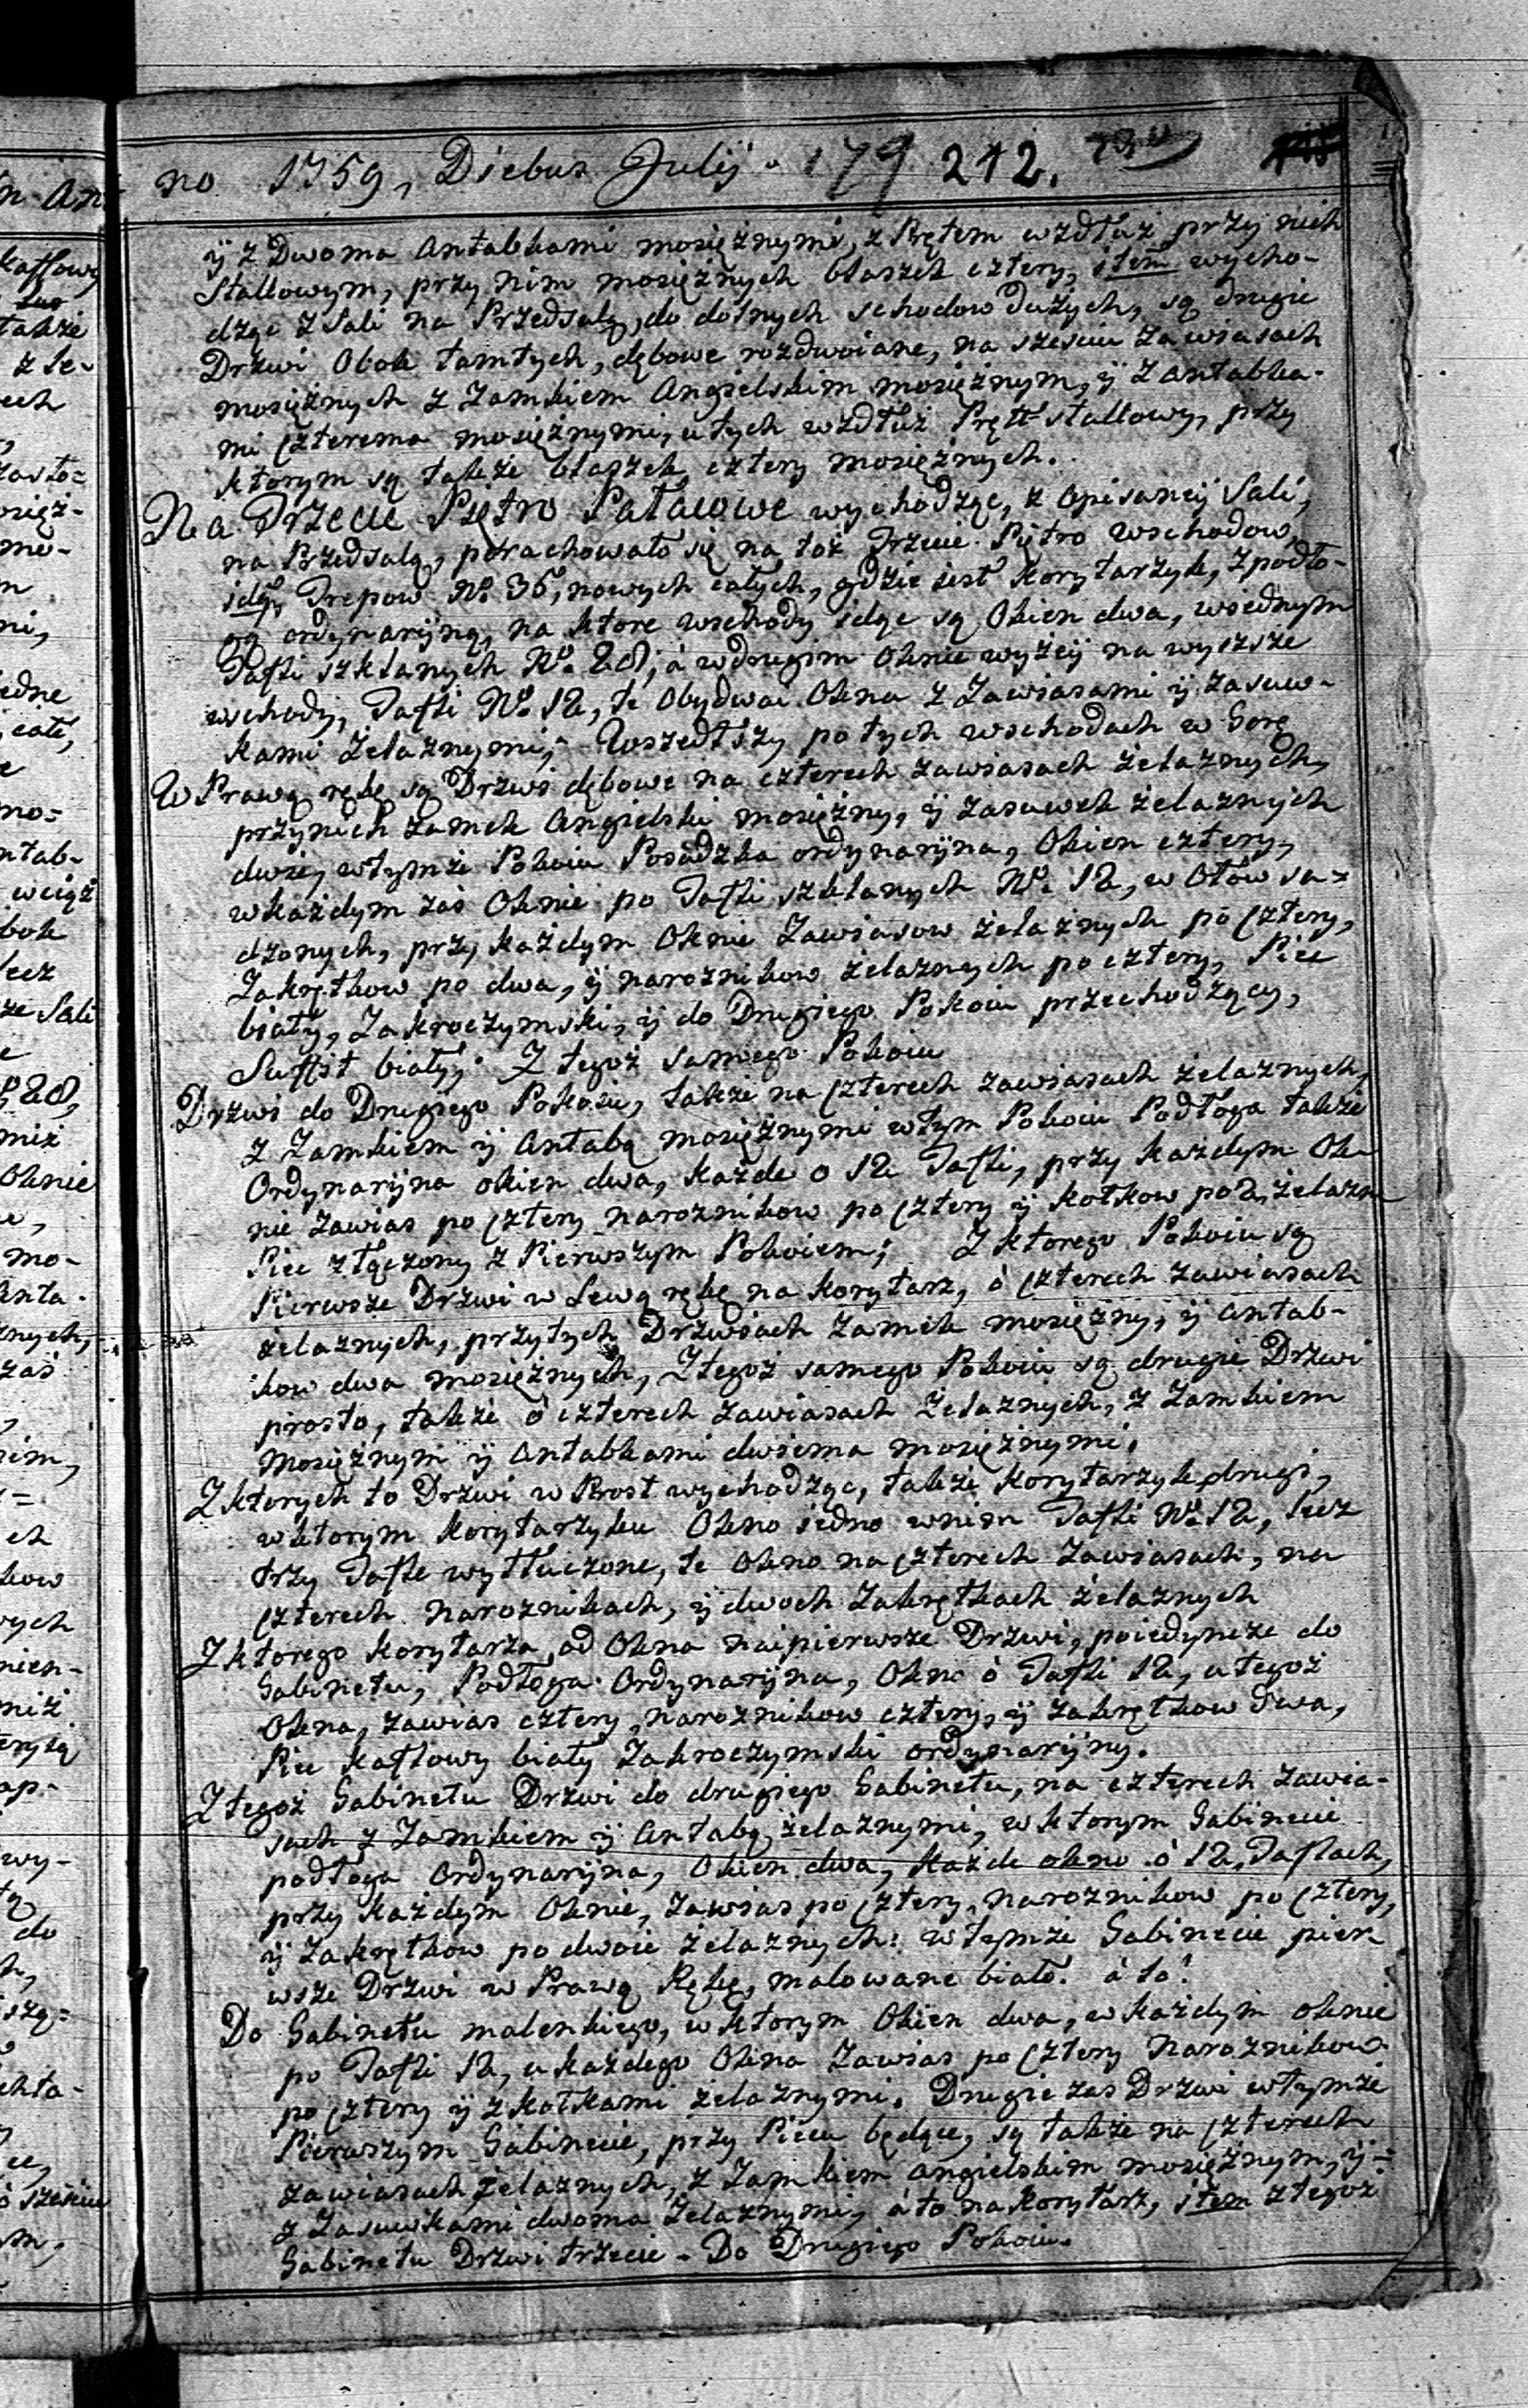 no 1759, Diebus Julij 179 212.
ÿ z Dwoma Antabkami mosiężnymi, z Prętem wzdłuż przy nich
Stallowym, przy nim mosiężnych blaszek cztery, item wycho-
dząc z Sali na Przedsalą, do dolnych schodow dużych, są drugie
Drzwi Obok tamtych, dębowe rozdwoiane, na sześciu zawiasach
mosiężnych z Zamkiem Angielskim mosiężnym, ÿ z antabka-
mi czterema mosiężnymi, u tych wzdłuż Pręt stallowy, przy
ktorym są także blaszek cztery mosiężnych.
Na Trzecie Piętro Pałacowe wychodząc, z opisaneÿ Sali,
na Przedsalą, porachowało się na toż Trzecie Piętro wschodow,
idąc, Trepow No. 35, nowych całych, gdzie iest Korytarzyk, z podło-
gą ordynarÿną, na ktore wschody idąc są Okien dwa, wiednym
Tafli szklanych No. 28, á wdrugim Oknie wyżeÿ na wyszsze
wschody, Tafli No. 12, te Obydwa Okna z Zawiasami ÿ zasuw-
kami Żelaznymi; Wszedłszy po tych wschodach w Gorę
W Prawą rękę są Drzwi dębowe na czterech zawiasach żelaznych,
przynich zamek Angielski mosiężny, ÿ zasuwek żelaznych
dwie, wtymże Pokoiu Posadzka ordynarÿna, Okien cztery,
wkażdym zaś Oknie po Tafli szklanych No. 12, w Ołow sa-
dzonych, przy każdym Oknie Zawiasow żelaznych po cztery,
Zakrętkow po dwa, ÿ narożnikow żelaznych po cztery, Piec
biały, Zakroczymski, ÿ do Drugiego Pokoiu przechodzący,
Suffit biały; Z tegoż samego Pokoiu
Drzwi do Drugiego Pokoiu, także na czterech zawiasach żelaznych,
z Zamkiem ÿ Antabą mosiężnymi wtym Pokoiu Podłoga także
Ordynarÿna okien dwa, każde o 12 Tafli, przy każdym Ok-
nie zawias po cztery narożnikow po cztery ÿ Kołkow po 2, żelazn
Piec złączony z Pierwszym Pokoiem; Z ktorego Pokoiu są
Pierwsze Drzwi w Lewą rękę na Korytarz, ó czterech zawiasach
żelaznych, przytych Drzwiach zamek mosiężny, ÿ antab-
kow dwa mosiężnych, Ztegoż samego Pokoiu są drugie Drzwi
prosto, także ó czterech zawiasach Żelaznych, z Zamkiem
mosiężnym ÿ Antabkami dwiema mosiężnymi,
Z ktorych to Drzwi w Prost wychodząc, także Korytarzyk drugi,
wktorym Korytarzyku Okno iedno wnim Tafli No. 12, lecz
trzy Tafle wytłuczone, te okno na czterech Zawiasach, na
czterech narożnikach, ÿ dwoch Zakrętkach żelaznych
Z ktorego Korytarza od Okna naipierwsze Drzwi, poiedyncze do
Gabinetu, Podłoga Ordynarÿna, Okno ó Tafli 12, u tegoż
Okna, zawias cztery, narożnikow cztery, ÿ zakrętkow Dwa,
Piec Kaflowy biały Zakroczymski ordynarÿny.
Z tegoż Gabinetu Drzwi do drugiego Gabinetu, na czterech zawia-
sach z Zamkiem ÿ Antabą żelaznymi, wktorym Gabinecie
podłoga Ordynarÿna, Okien dwa, każde okno ó 12, Taflach,
przy każdym Oknie, zawias po cztery, narożnikow po cztery,
ÿ Zakrętkow po dwoie żelaznych: wtymże Gabinecie pier
wsze Drzwi w Prawą Rękę, malowane biało. á to!
Do Gabinetu malenkiego, wktorym Okien dwa, wkażdym oknie
po Tafli 12, u każdego Okna Zawias po cztery Narożnikow
po cztery ÿ z Kołkami żelaznymi. Drugie zaś Drzwi wtymże
Pierwszym Gabinecie, przy Piecu będące, są także na czterech
zawiasach żelaznych, z Zamkiem Angielskim mosiężnym, ÿ-
z Zasuwkami dwoma Żelaznymi, á to na Korytarz, item z tegoż
Gabinetu Drzwi trzecie - Do Drugiego Pokoiu.